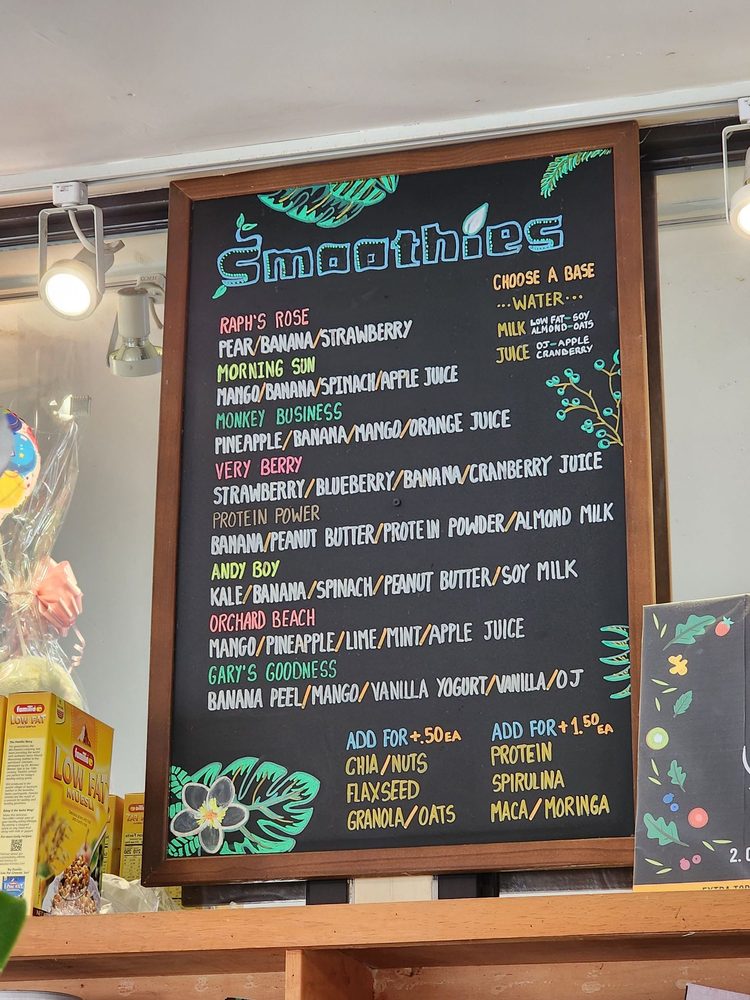 Smoothies
CHOOSE A BASE
...WATER...
MILK LOW FAT-SOY
ALMOND-OATS
JUICE OJ-APPLE
CRANBERRY
RAPH'S ROSE
PEAR/BANANA/STRAWBERRY
MORNING SUN
MANGO/BANANA/SPINACH/APPLE JUICE
MONKEY BUSINESS
PINEAPPLE/BANANA/MANGO/ORANGE JUICE
VERY BERRY
STRAWBERRY/BLUEBERRY/BANANA/CRANBERRY JUICE
PROTEIN POWER
BANANA/PEANUT BUTTER/PROTEIN POWDER/ALMOND MILK
ANDY BOY
KALE/BANANA/SPINACH/PEANUT BUTTER/SOY MILK
ORCHARD BEACH
MANGO/PINEAPPLE/LIME/MINT/APPLE JUICE
GARY'S GOODNESS
BANANA PEEL/MANGO/VANILLA YOGURT/VANILLA/OJ
ADD FOR +.50 EA
CHIA/NUTS
FLAXSEED
GRANOLA/OATS
ADD FOR +1.50 EA
PROTEIN
SPIRULINA
MACA/MORINGA
familia
LOW FAT
familia
LOW FAT
MUESLI
2.